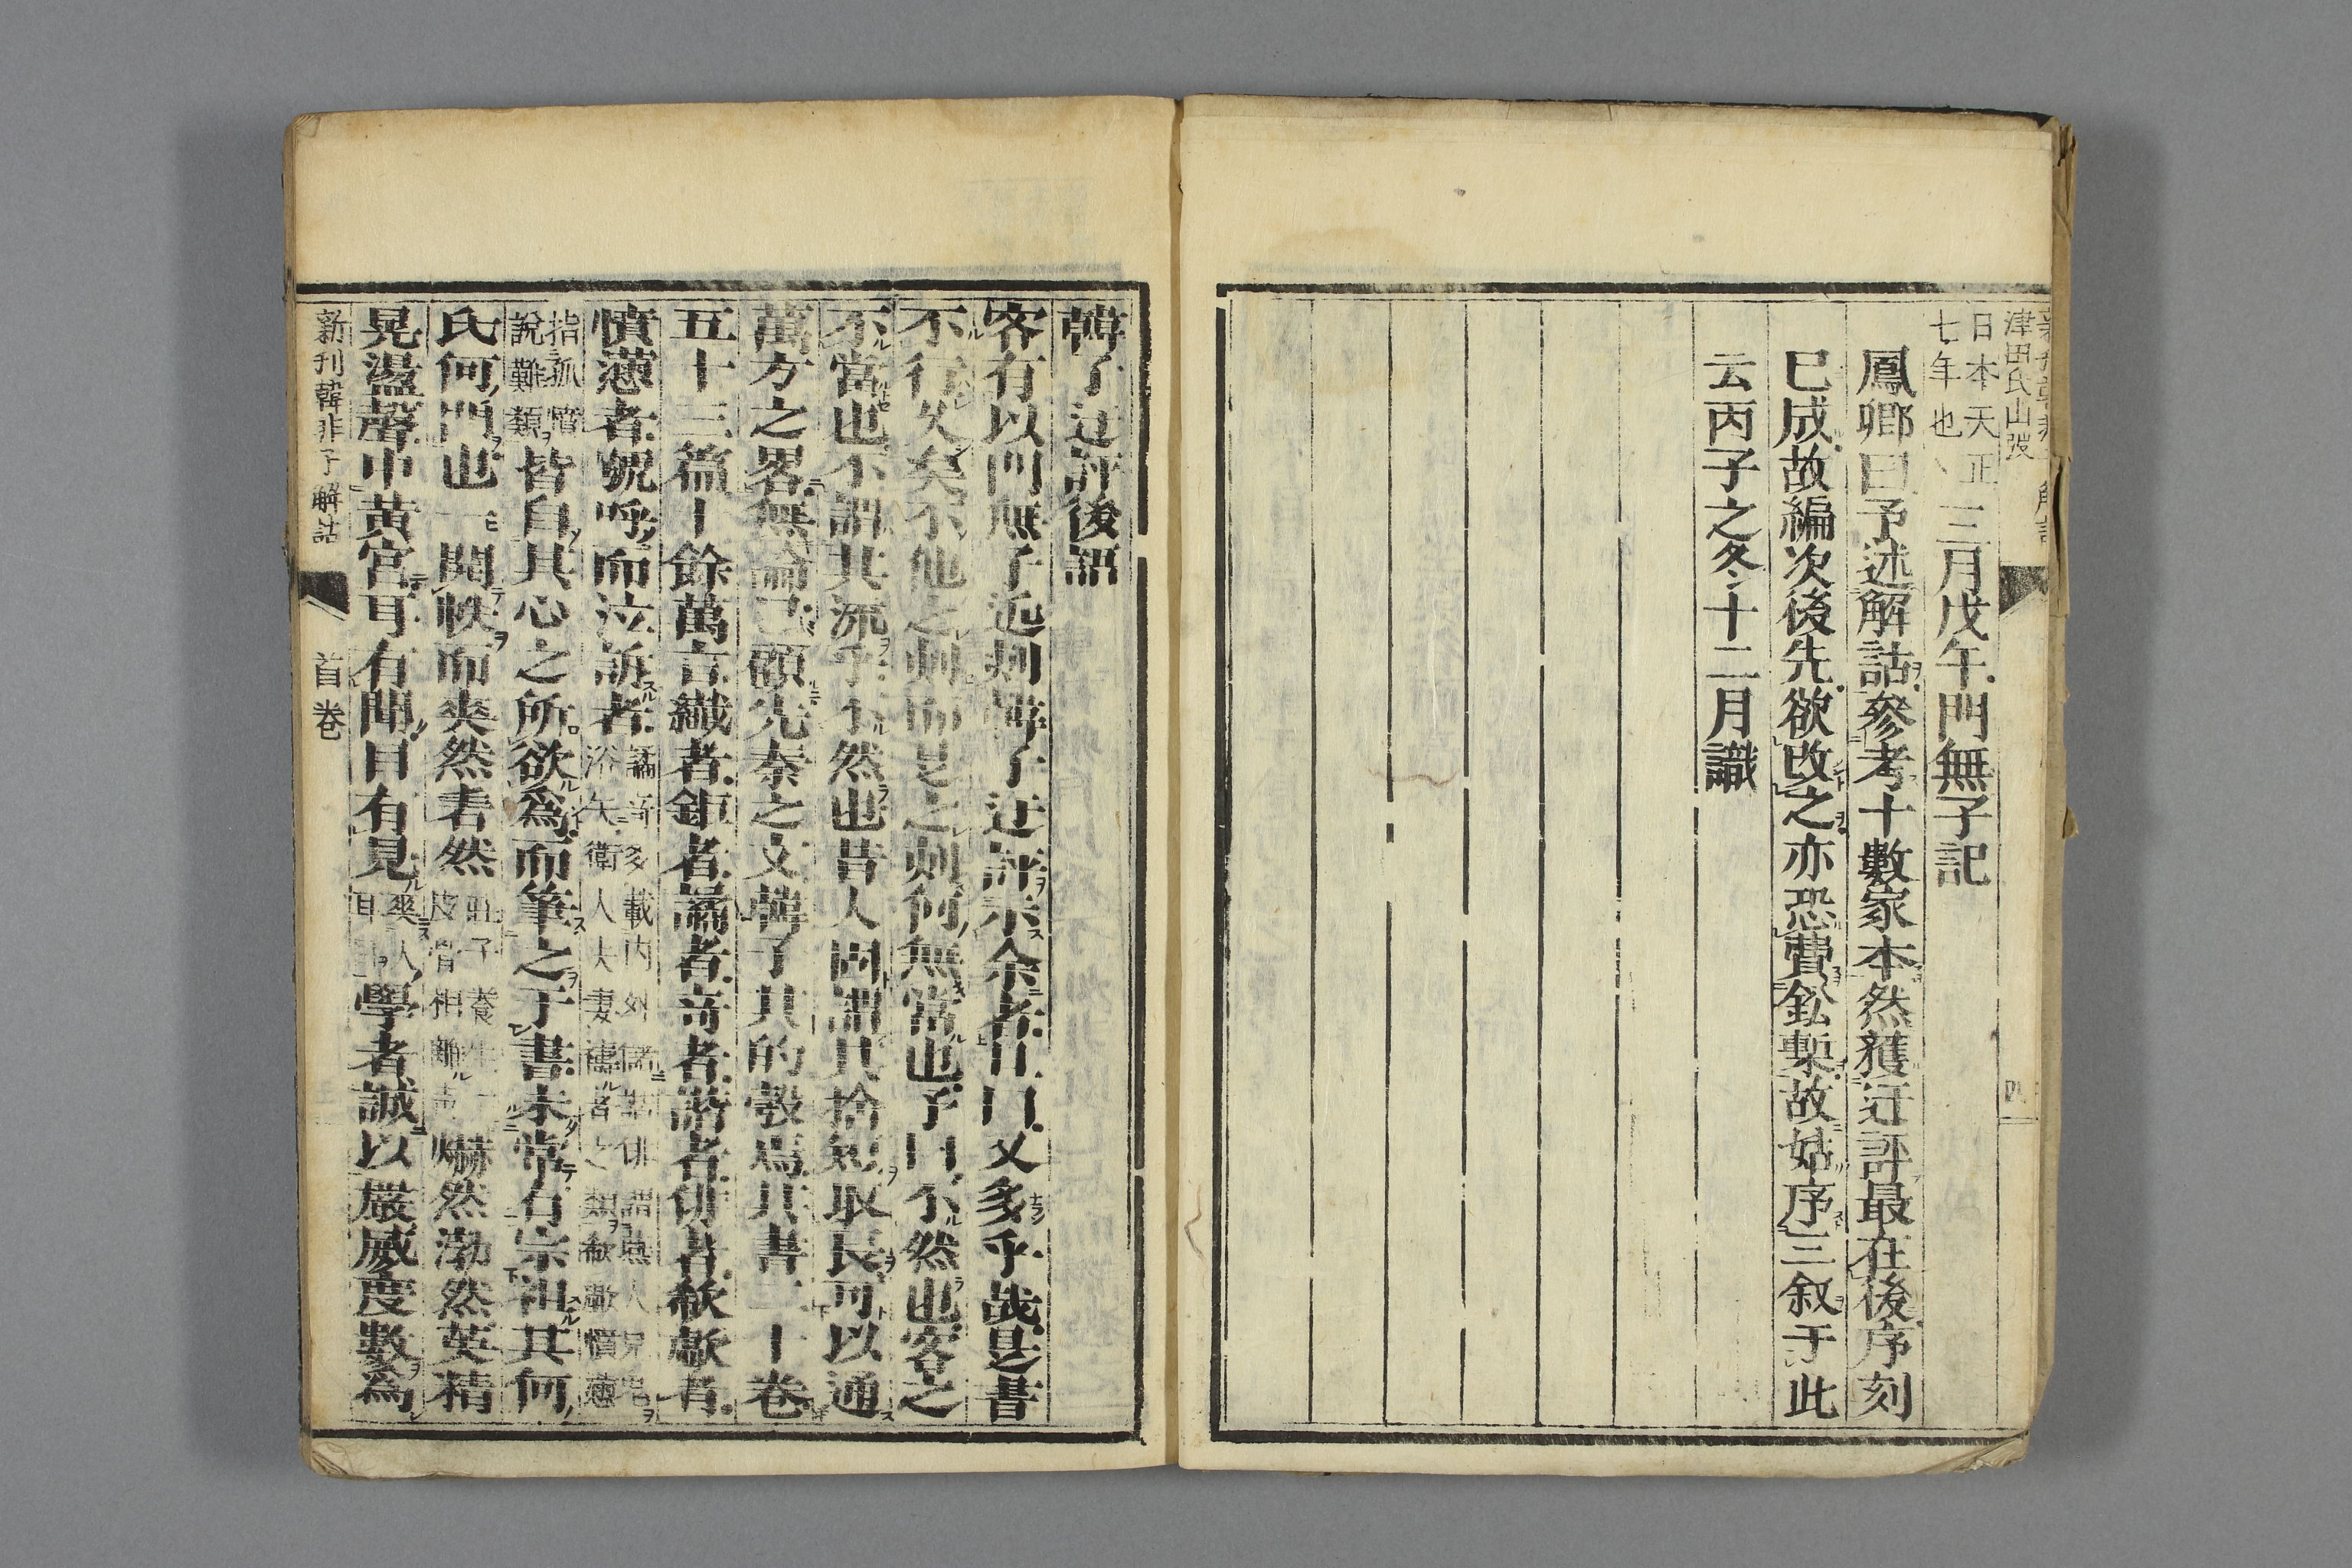 日本天正
七年也
三月戊午門無子記
鳳卿曰予述解詁參考十數家本然獲迂評最在後序刻
已成故編次後先欲改之亦恐費鈆槧故姑序三叙于此
云丙子之冬十二月識
津田氏山
四
韓子迂評後語
客有以問無子迂刻韓子迂評示余者曰又多乎哉是書
不行久矣不他之刻而是之刻何無當也予曰不然也客之
不當也不謂其深乎不然也昔人固謂其捨短取長可以通
萬方之畧無論已顧先秦之文韓子其的彀焉其書二十卷
五十三篇十餘萬言纖者鉅者譎者奇者諧者俳者欷歔者
憤懣者號呼而泣訴者
譎奇多載内外儲諧俳謂燕人
浴矢衛人夫妻禱者之類欷歔憤懣
指孤憤
說難類
皆自其心之所欲為而筆之于書未常有宗祖其何
氏何門也一開帙而爽然砉然
莊子養生
赫然渤然英精
晃盪聲中黄宮耳有聞目有見
學者誠以嚴威度數為
新刊韓非子解詁
首卷